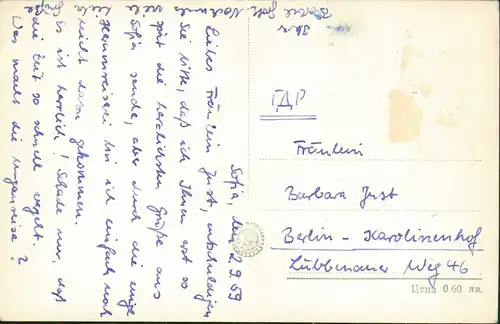 Sofia, den 2.9.69
Liebes Fräulein Just, entschuldigen
Sie bitte, daß ich Ihnen erst so
spät die herzlichsten Grüße aus
Sofia sende, aber durch die enge
Hereinreiserei bin ich einfach noch
nicht dazu gekommen.
Es ist herrlich! Schade nur, daß
die Zeit so schnell vergeht.
Was macht die Ungarnreise?
Nochmals viele
liebe
Grüße
Ihre
ГДР
Fräulein
Barbara Just
Berlin - Karolinenhof
Lübbenauer Weg 46
Цена 0.60 лв.